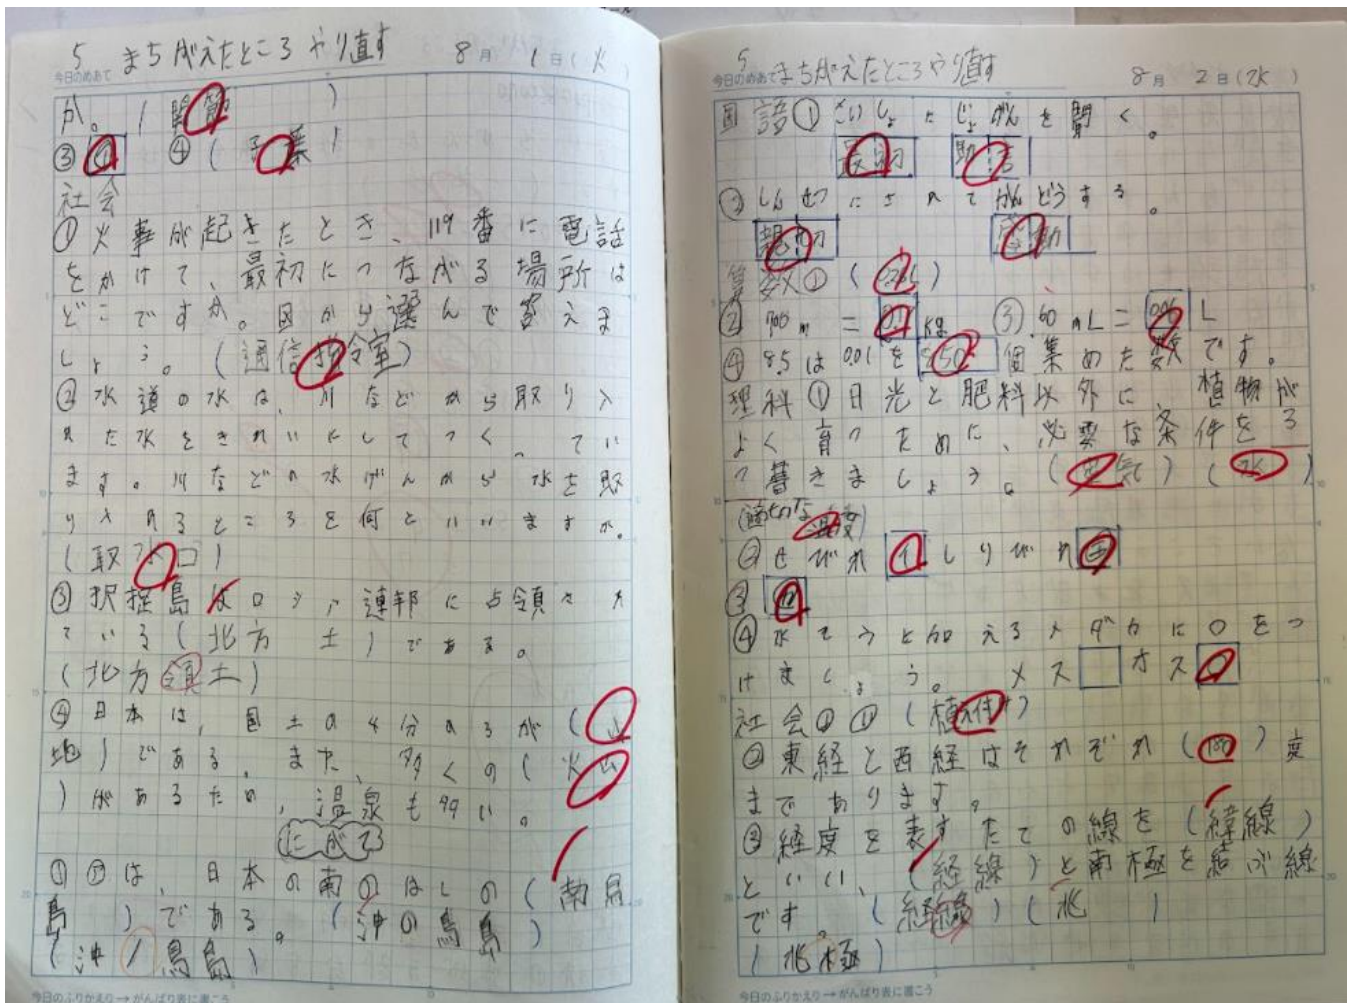 5 まちがえたところやり直す
今日のめあて
8月1日(火)
か。(関節)
③ ④(子葉)
社会
①火事が起きたとき、119番に電話
をかけて、最初につながる場所は
どこですか。図から選んで答えま
しょう。(通信指令室)
②水道の水は、川などから取り入
れた水をきれいにしてつく。てい
ます。川などの水げんから水を取
り入れるところを何といいますか。
(取水口)
③択捉島はロシア連邦に占領され
ている(北方 土)である。
(北方領土)
④日本は、国土の4分の3が(山
地)である。また、多くの(火山
)があるため、温泉も多い。
にがて
①㋐は、日本の南のはしの(南鳥
島)である。(沖の鳥島)
(沖ノ鳥島)
今日のふりかえり→がんばり表に書こう
5 まちがえたところやり直す
今日のめあて
8月2日(水)
国語①さいしょにじょげんを聞く。
最初 助言
②しんせつにされてかんどうする。
親切 感動
算数①
②700m= kg ③60mL=0.06L
④8.5は0.01を850個集めた数です。
理科①日光と肥料以外に、植物が
よく育つために、必要な条件を3
つ書きましょう。(空気)(水)
(適切な温度)
②せびれ しりびれ
③
④水てうと加えるメダカに○をつ
けましょう。メス オス
社会 ①(植え付け)
②東経と西経はそれぞれ(180)度
まであります。
③経度を表すたての線を(緯線)
といい、(経線)と南極を結ぶ線
です。(経線)(北 )
(北極)
今日のふりかえり→がんばり表に書こう